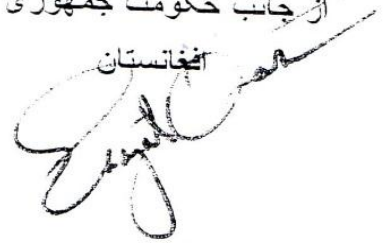 از جانب حکومت جمهوری
افغانستان